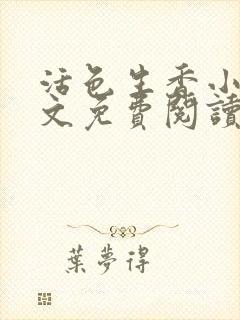 活色生香小
文免費閱讀
葉夢得